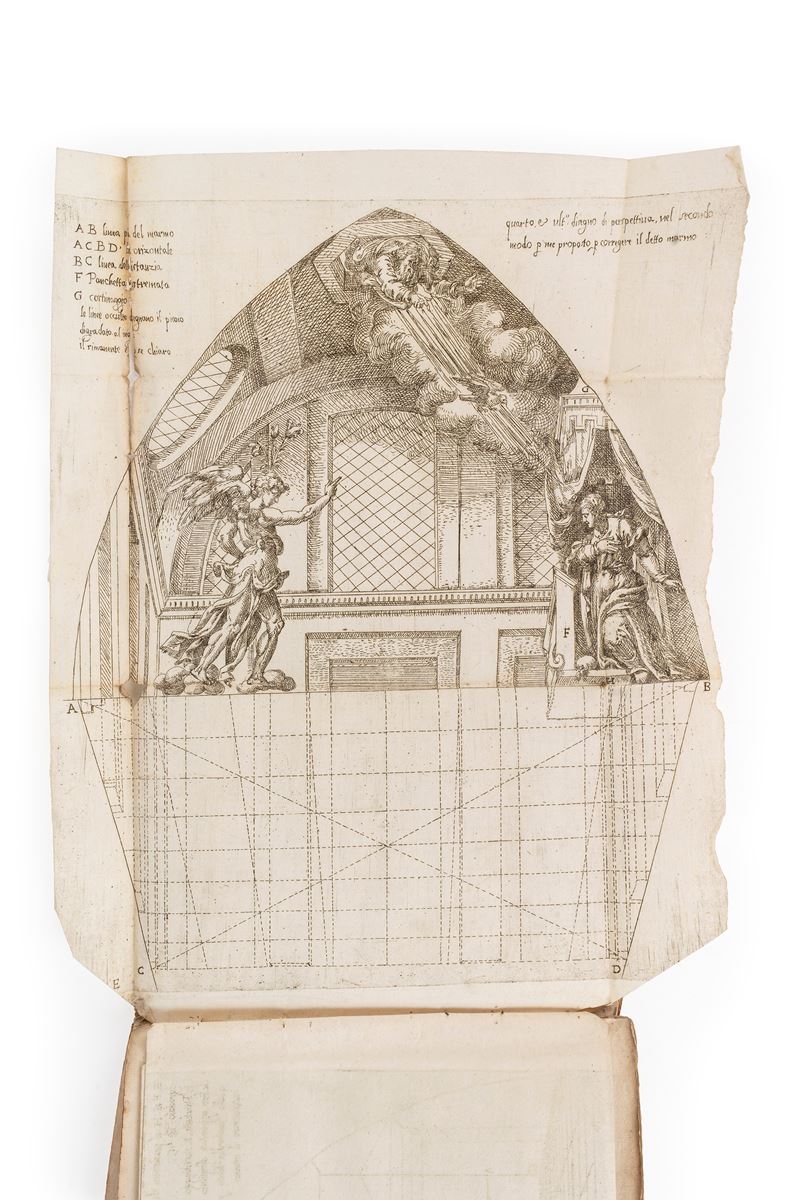 A B linea pa del marmo
A C B D. orizontale
B C linea di distanzia
F Panchetta
G cortinaggio
le linee occulte disegnano il piano
digradato al
il rimanente chiaro
quarto, e ult.º disegno di perspettiva, nel secondo
modo p me proposto p corregere il detto marmo
G
F
H
A
B
C
D
E